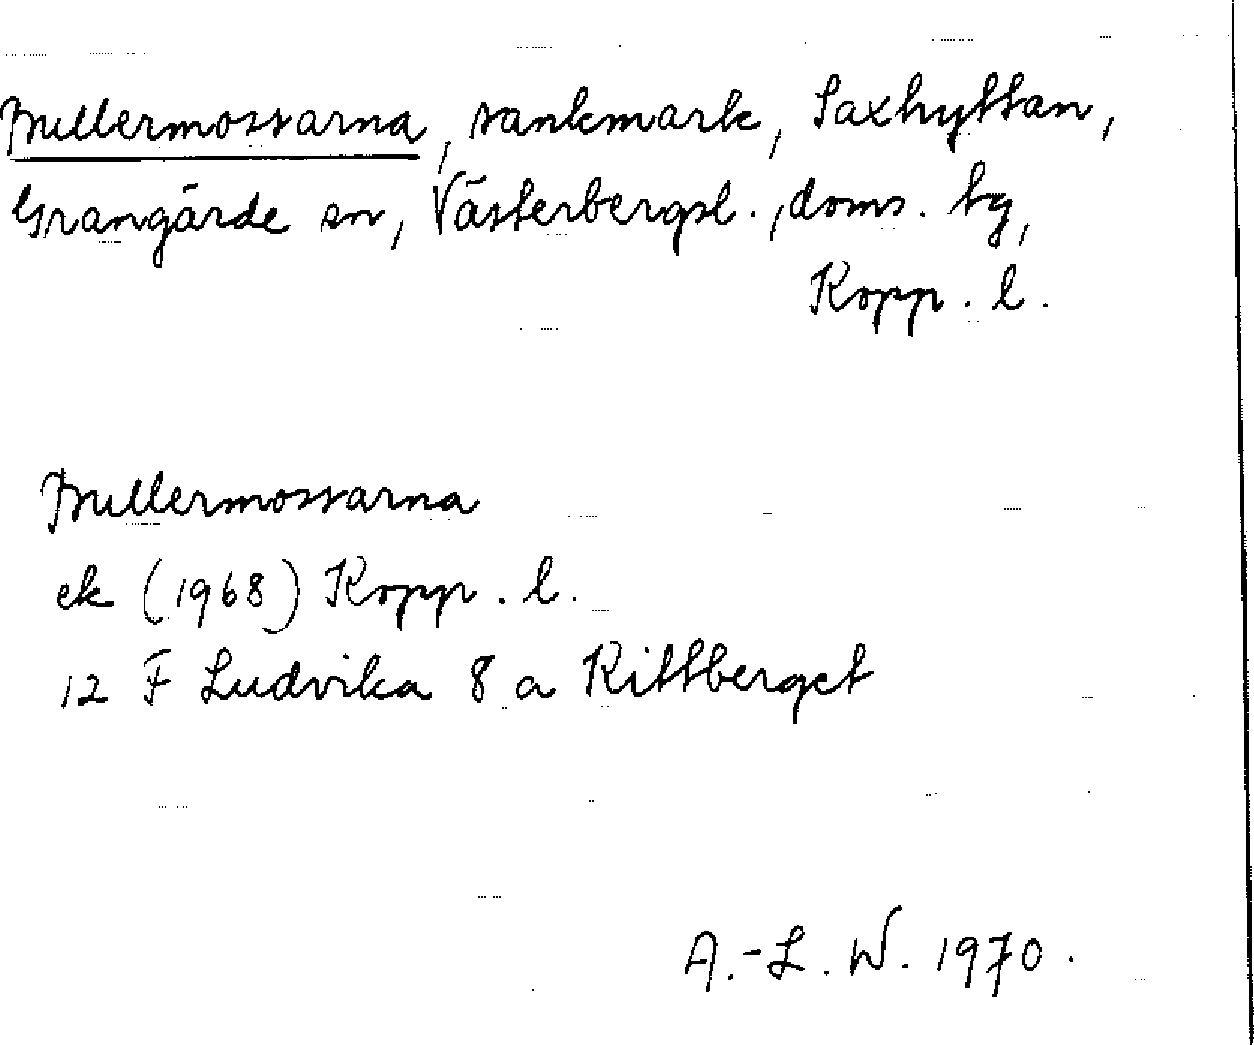 Bullermossarna, sankmark, Saxhyttan,
Grangärde sn, Västerbergsl., doms. tg,
Kopp. l.
Bullermossarna
ek (1968) Kopp. l.
12 F Ludvika 8 a Rittberget
A.-L. W. 1970.